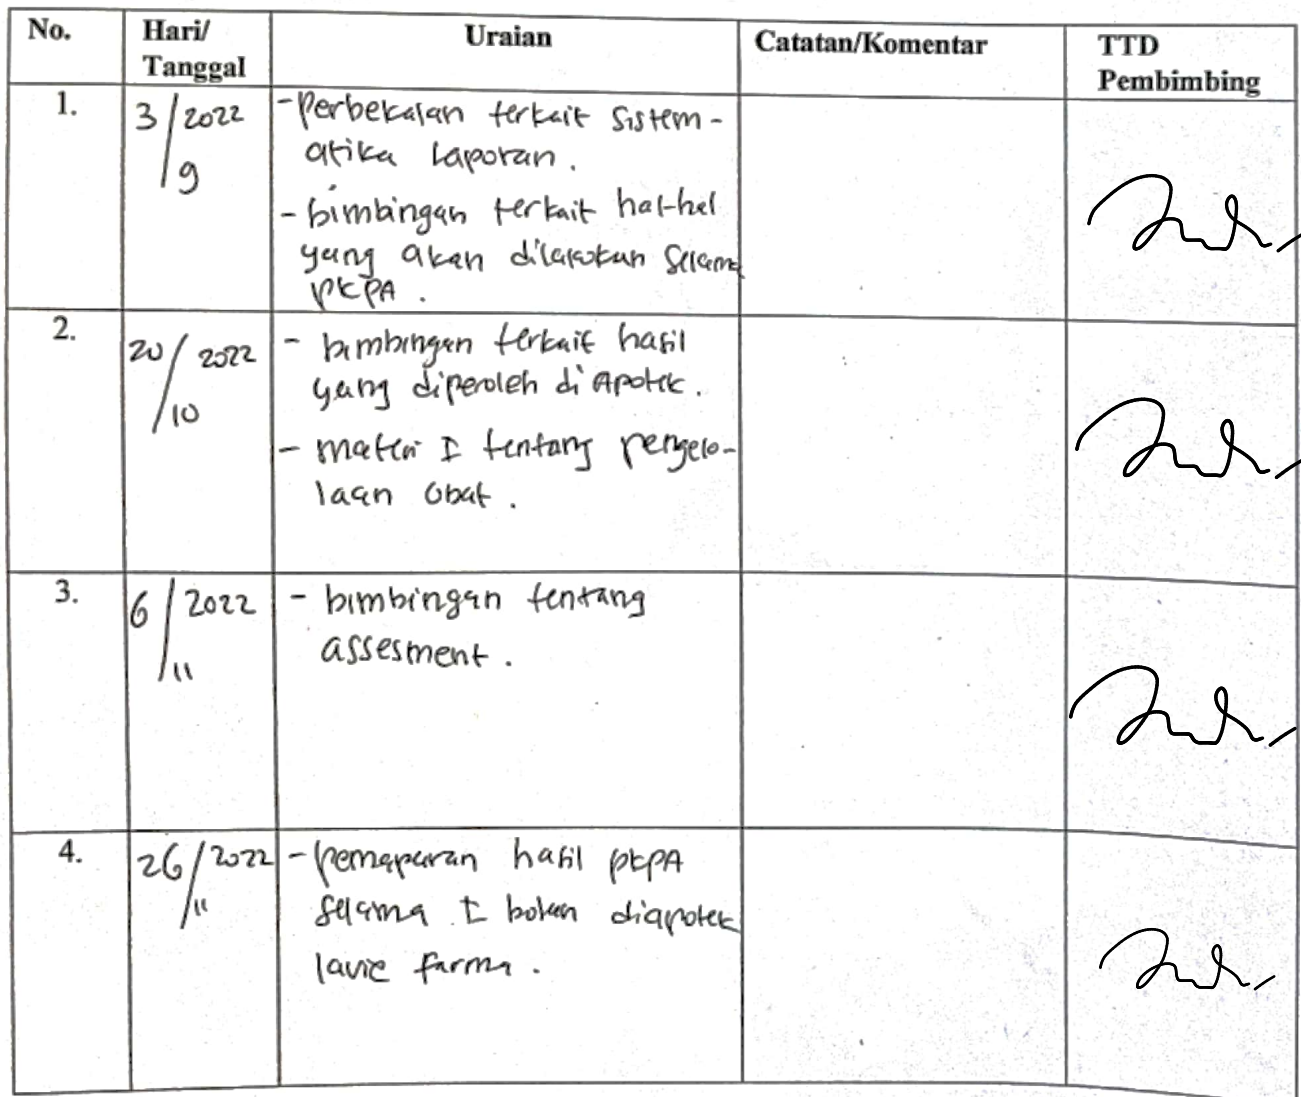 No. Hari/ Uraian Catatan/Komentar TTD
Tanggal Pembimbing
1. 3/2022 - Perbekalan terkait sistem-
9 atika laporan.
- bimbingan terkait hal-hal
yang akan dilakukan selama
PKPA.
2. 20/2022 - bimbingan terkait hasil
10 yang diperoleh di Apotek.
- materi I tentang pengelo-
laan obat.
3. 6/2022 - bimbingan tentang
11 assesment.
4. 26/2022 - pemaparan hasil pkpA
11 selama I bulan diapotek
lavie farma.